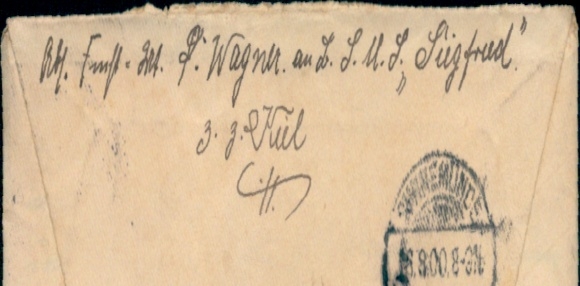 Abs. Funk-Mt. P. Wagner. an B. S. M. S. „Siegfried"
z. z. Kiel
SWINEMÜNDE
8.00.8-9N.